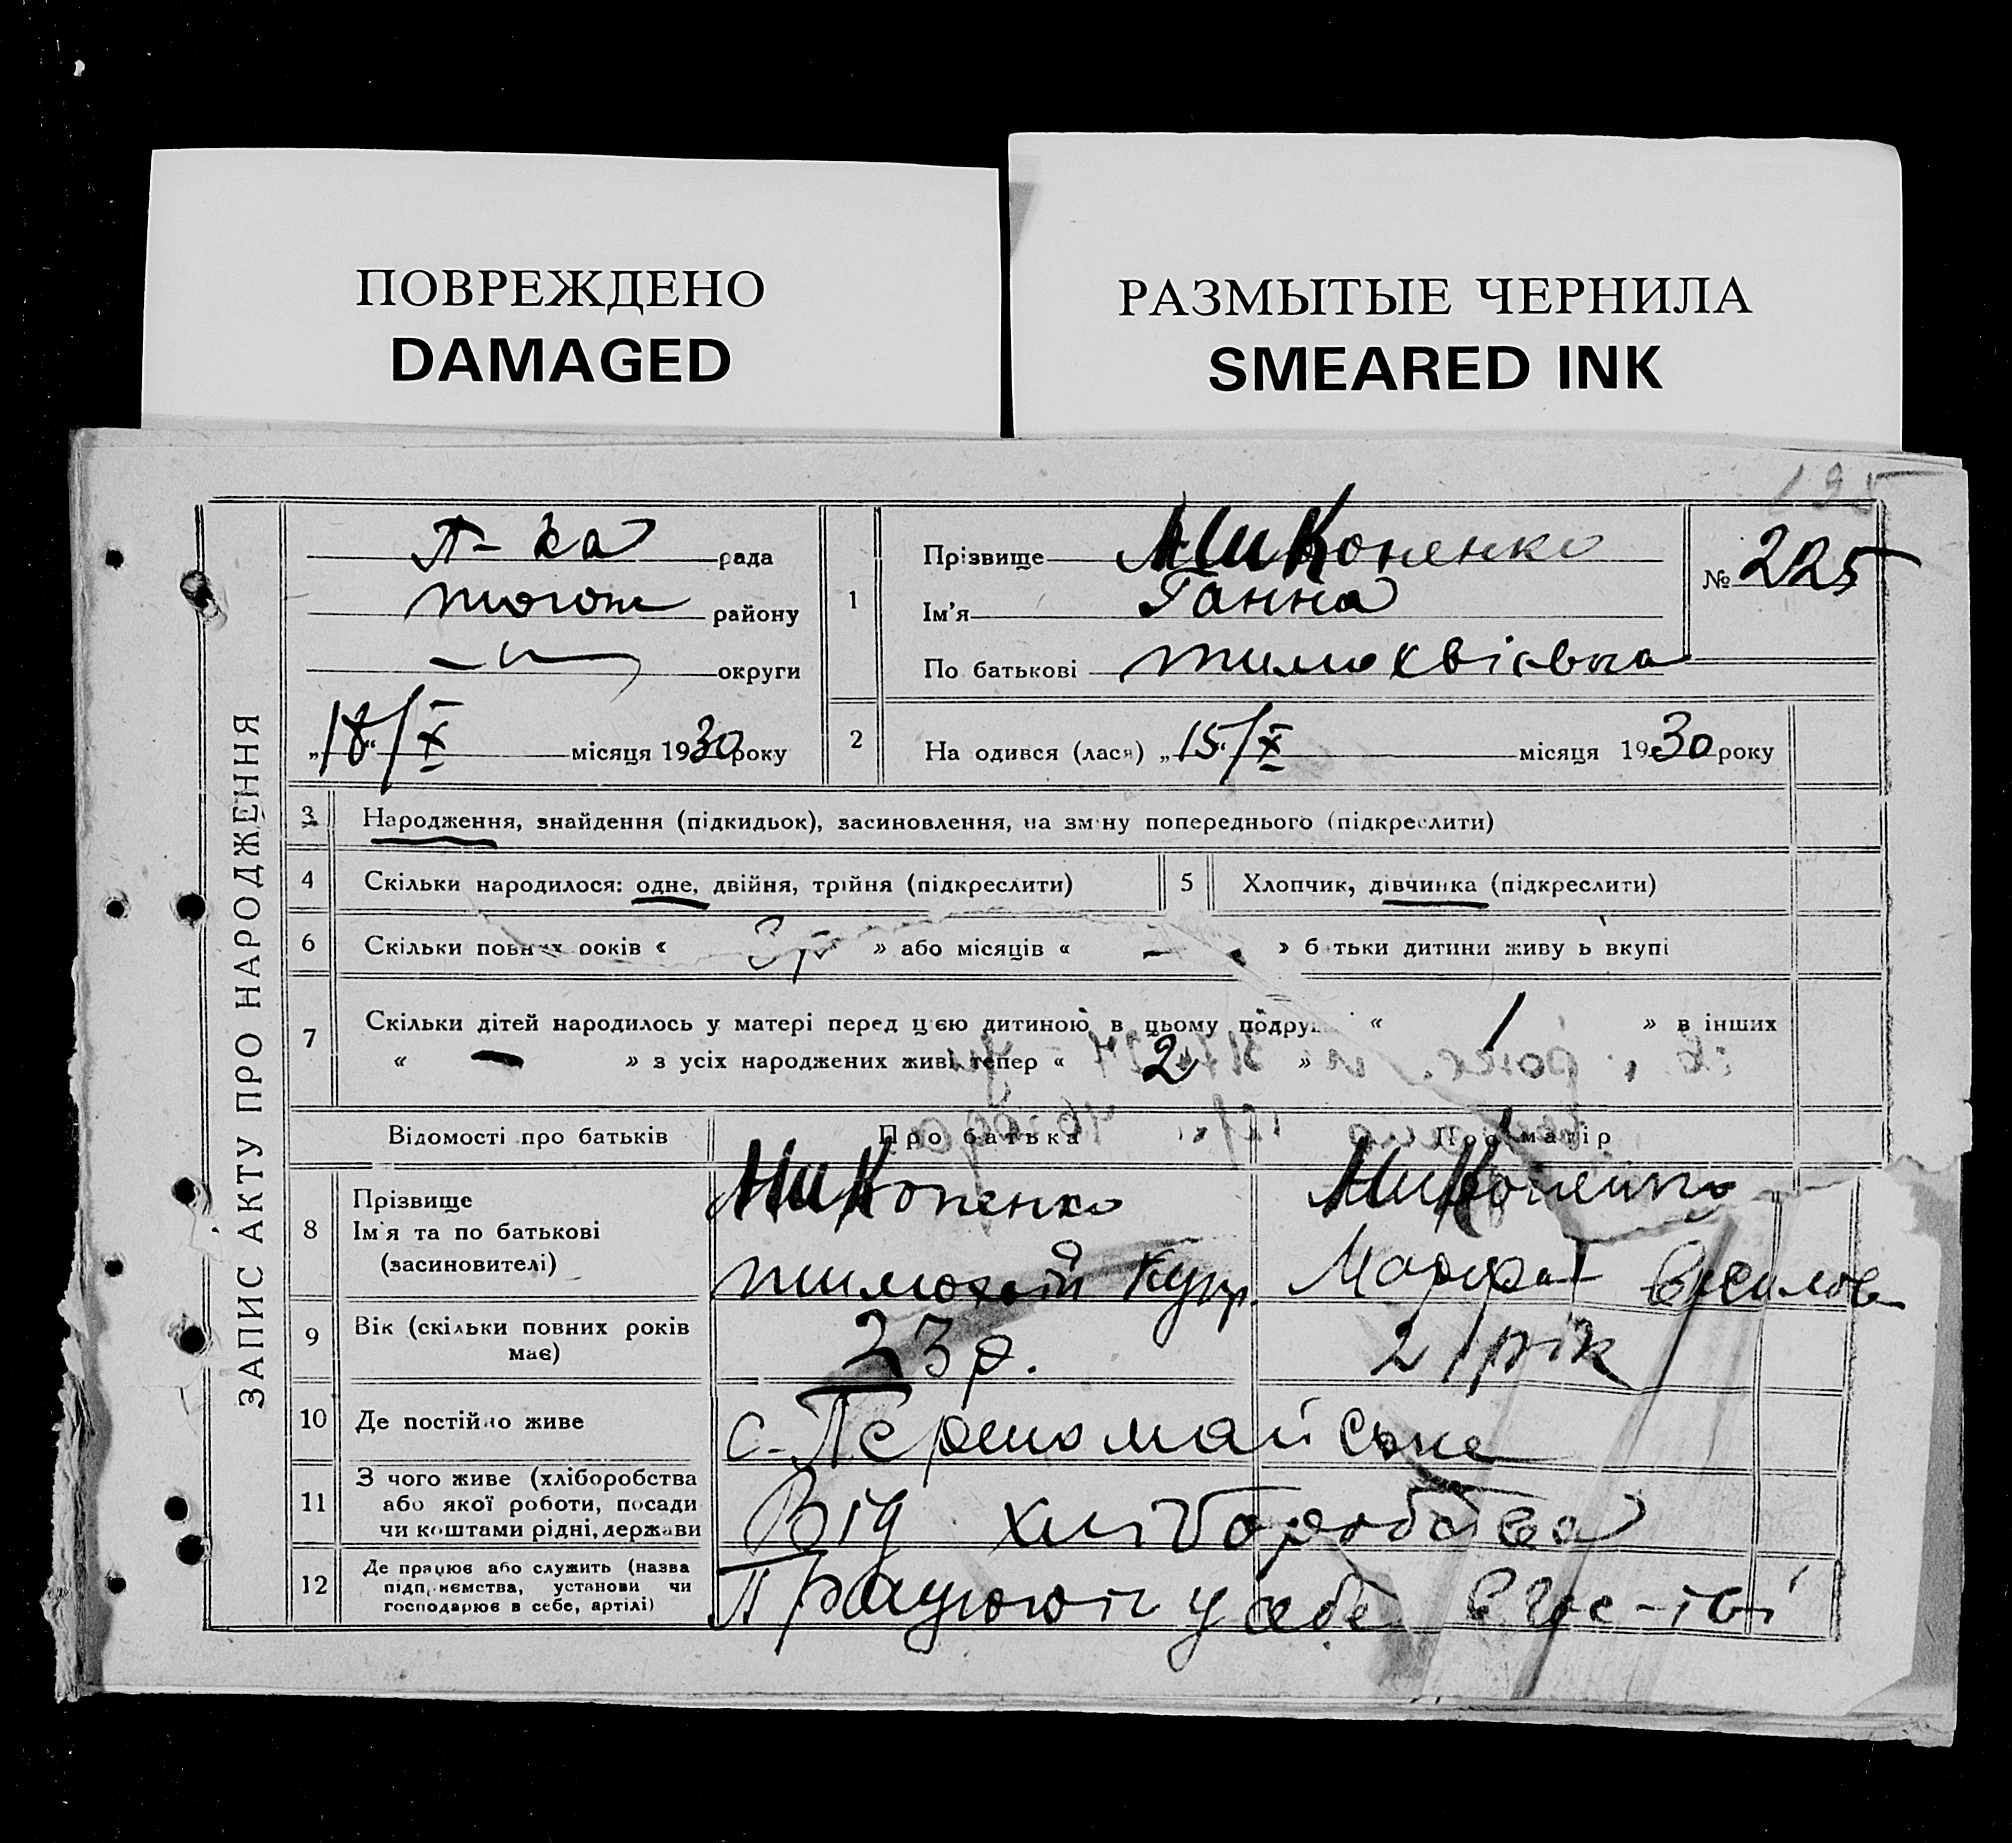 ПОВРЕЖДЕНО
DAMAGED
РАЗМЫТЫЕ ЧЕРНИЛА
SMEARED INK
195
ЗАПИС АКТУ ПРО НАРОДЖЕННЯ
П-ка рада
району
округи
„18“/X місяця 1930 року
1
Прізвище Миконенко
Ім'я Ганна
По батькові Тимохвієвна
№ 225
2 На одився (лася) „15“/X місяця 1930 року
3 Народження, знайдення (підкидьок), засиновлення, на зм ну попереднього (підкреслити)
4 Скільки народилося: одне, двійня, трійня (підкреслити)
5 Хлопчик, дівчинка (підкреслити)
6 Скільки повних років « 3 р » або місяців « — » б тьки дитини живу ь вкупі
7 Скільки дітей народилось у матері перед цією дитиною в цьому подру « 1 » в інших
« — » з усіх народжених живі тепер « 2 »
Відомості про батьків
Про батька
Про матір
8 Прізвище
Ім'я та по батькові
(засновителі)
Миконенко
Тимохвій Купр.
Миконенко
Марфа Василов
9 Вік (скільки повних років
має)
33 р.
21 рік
10 Де постійно живе
с. Першомайське
11 З чого живе (хліборобства
або якої роботи, посади
чи коштами рідні, держави
Від хліборобства
12 Де працює або служить (назва
підприємства, установи чи
господарює в себе, артілі)
Працюють у себе в гос-тві